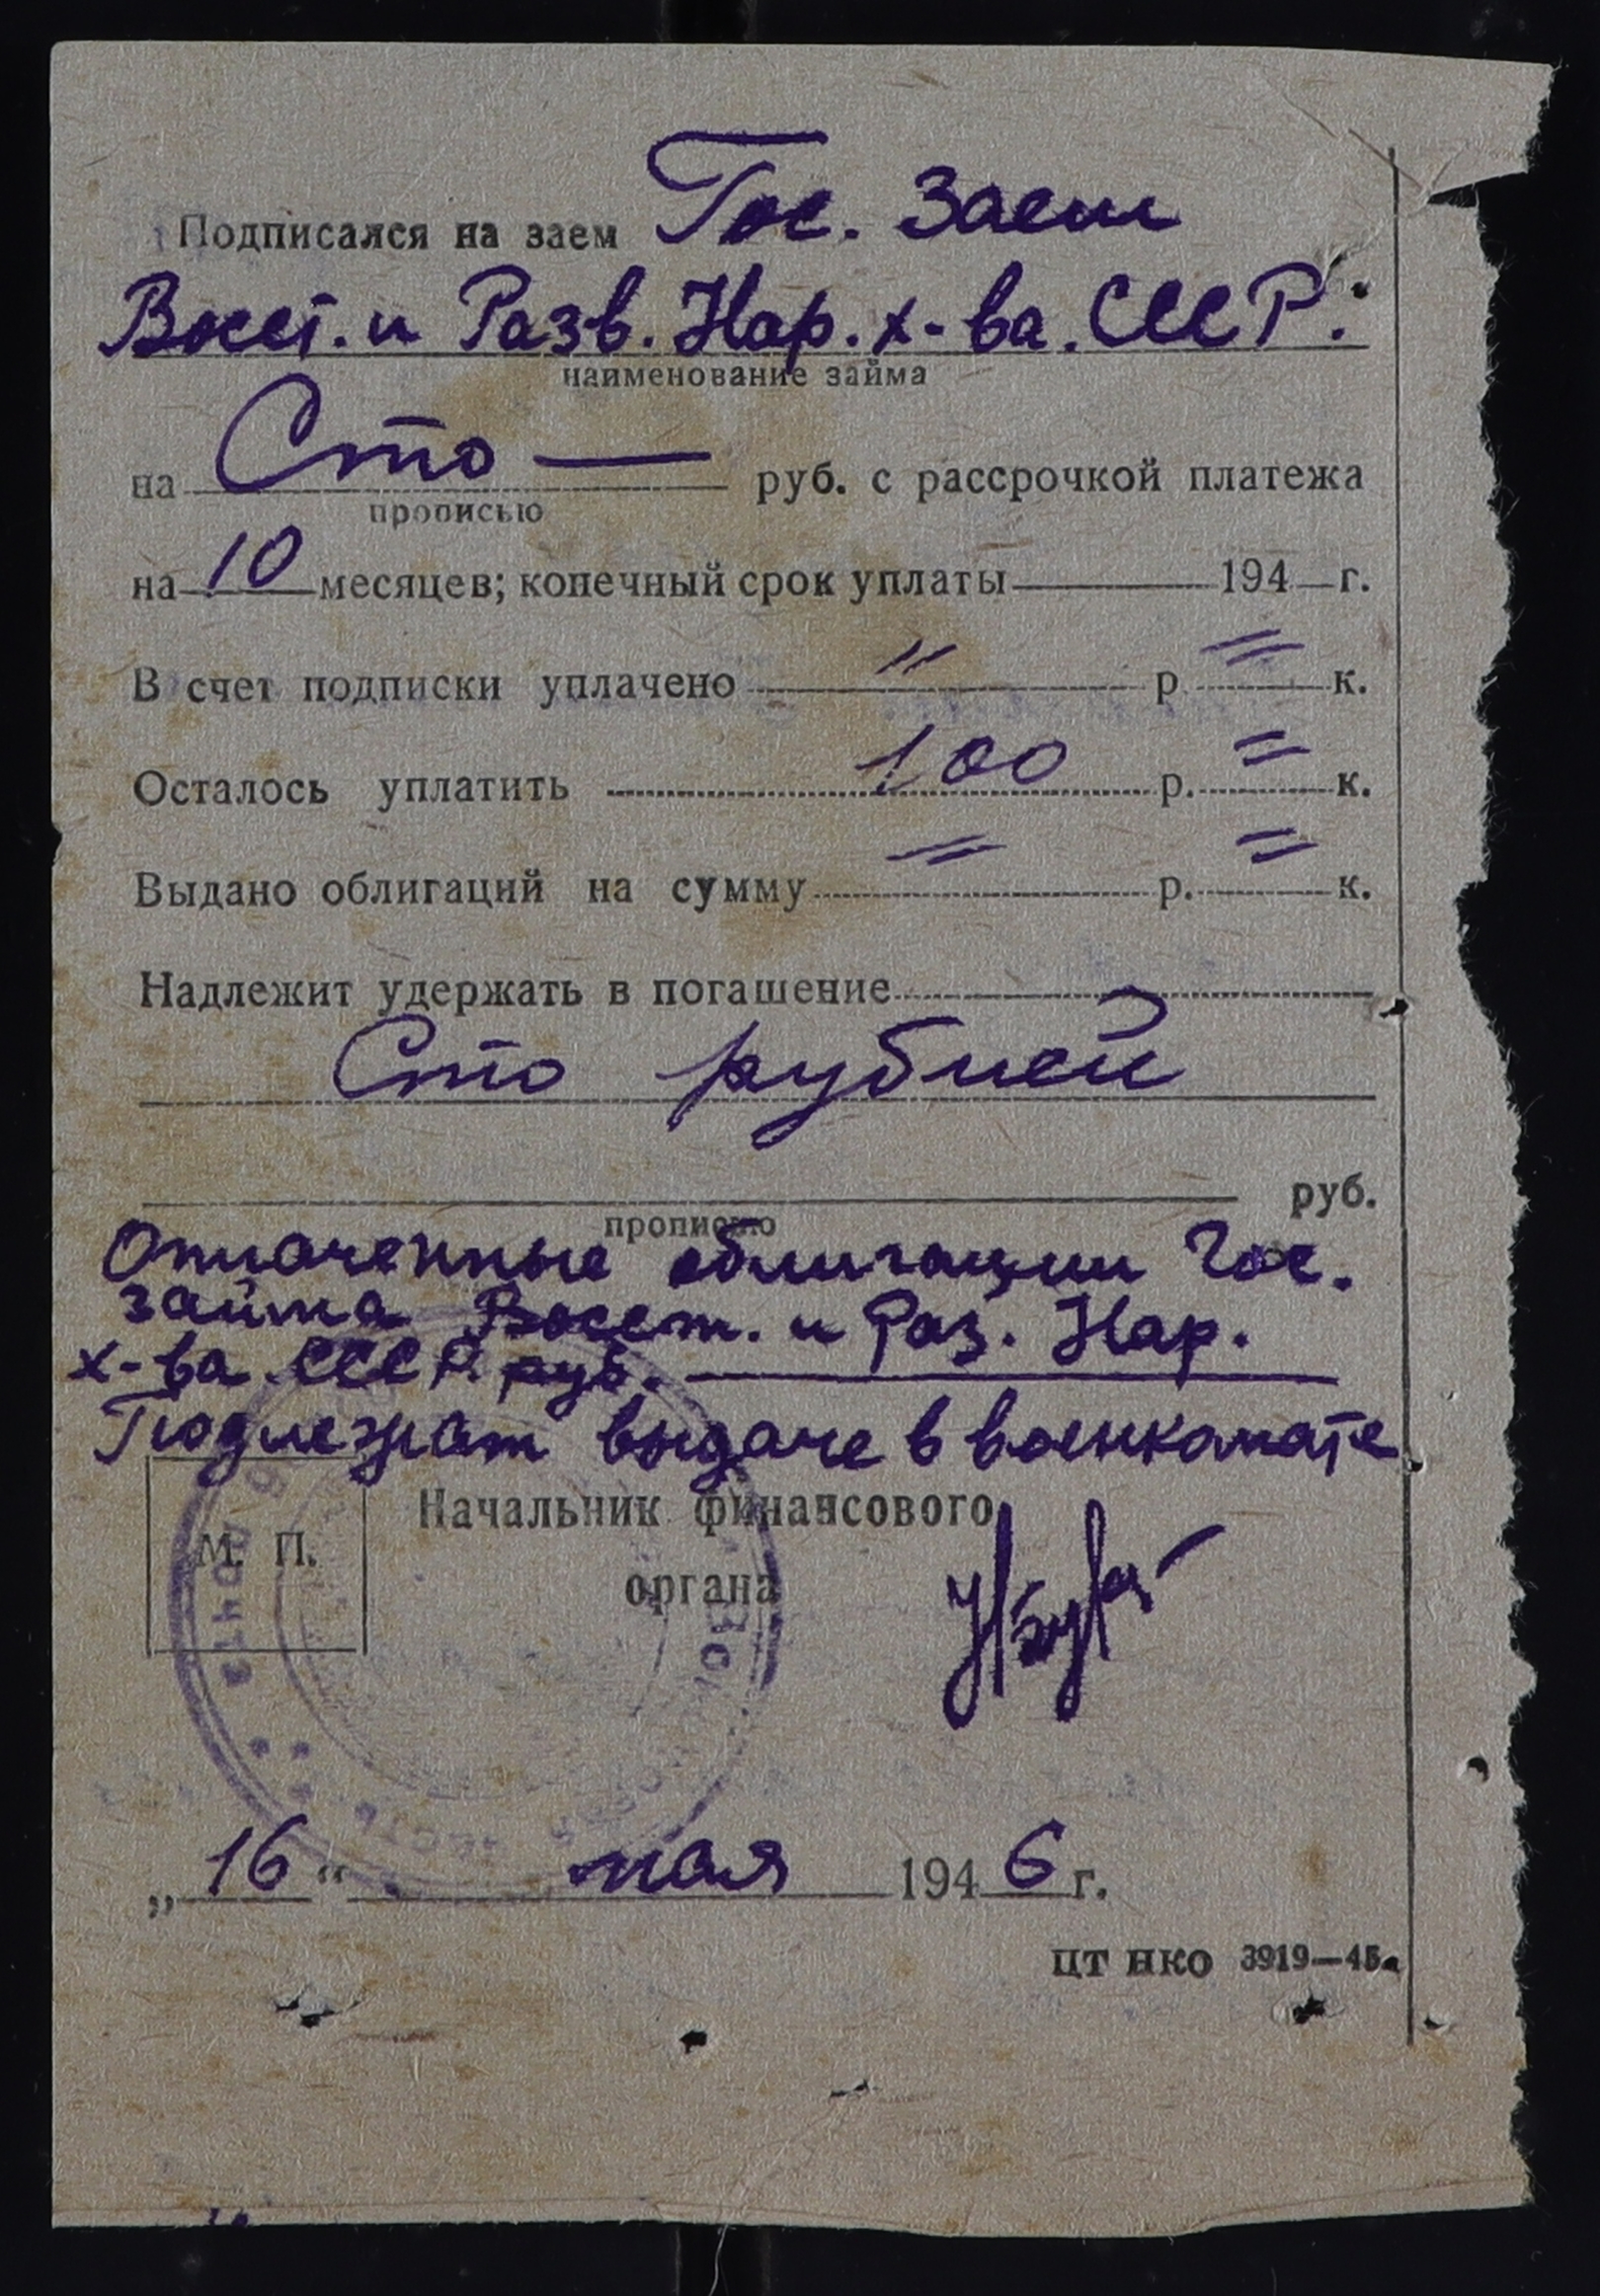 Подписался на заем Гос. Заем
Восст. и Разв. Нар. х-ва. СССР.
наименование займа
на Сто — руб. с рассрочкой платежа
прописью
на 10 месяцев; конечный срок уплаты 194 г.
В счет подписки уплачено " р. = к.
Осталось уплатить 100 р. = к.
Выдано облигаций на сумму = р. = к.
Надлежит удержать в погашение
Сто рублей
руб.
прописью
Оплаченные облигации Гос.
займа Восст. и Раз. Нар.
х-ва СССР руб.
Подлежат выдаче в военкомате
Начальник финансового
М. П.
органа
„16“ мая 1946 г.
ЦТ НКО 3919—45